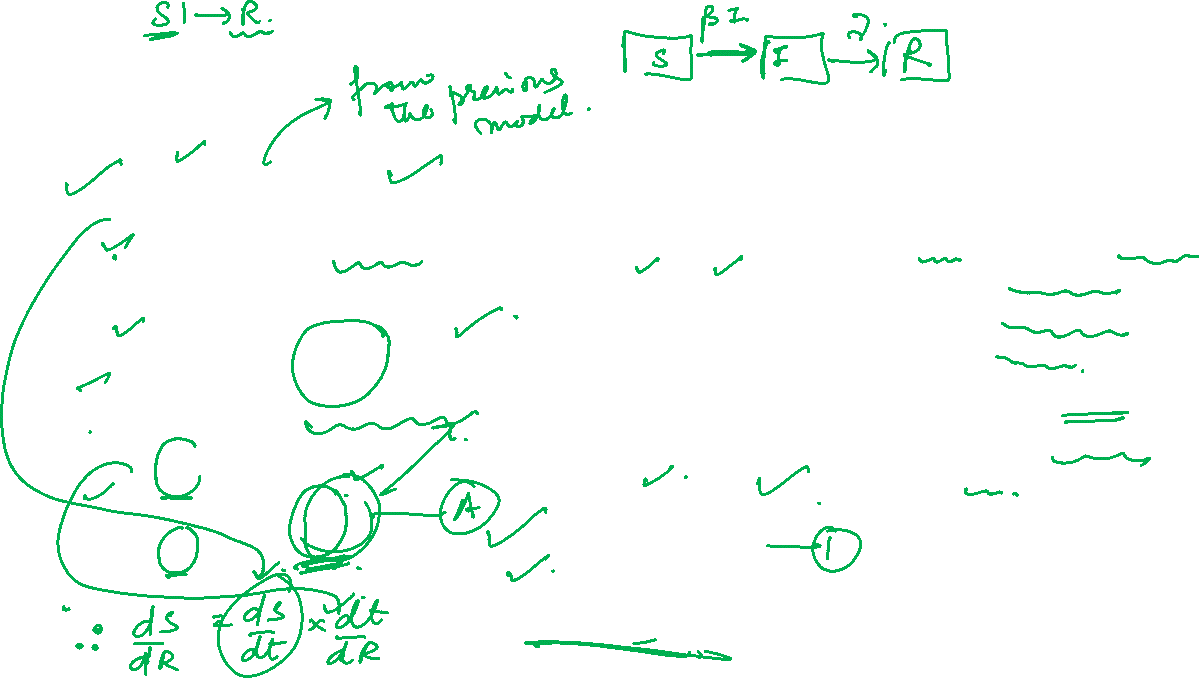 SI → R.
βI
S → I → R
from
the previous
model.
A
1
∴ dS/dR = dS/dt × dt/dR